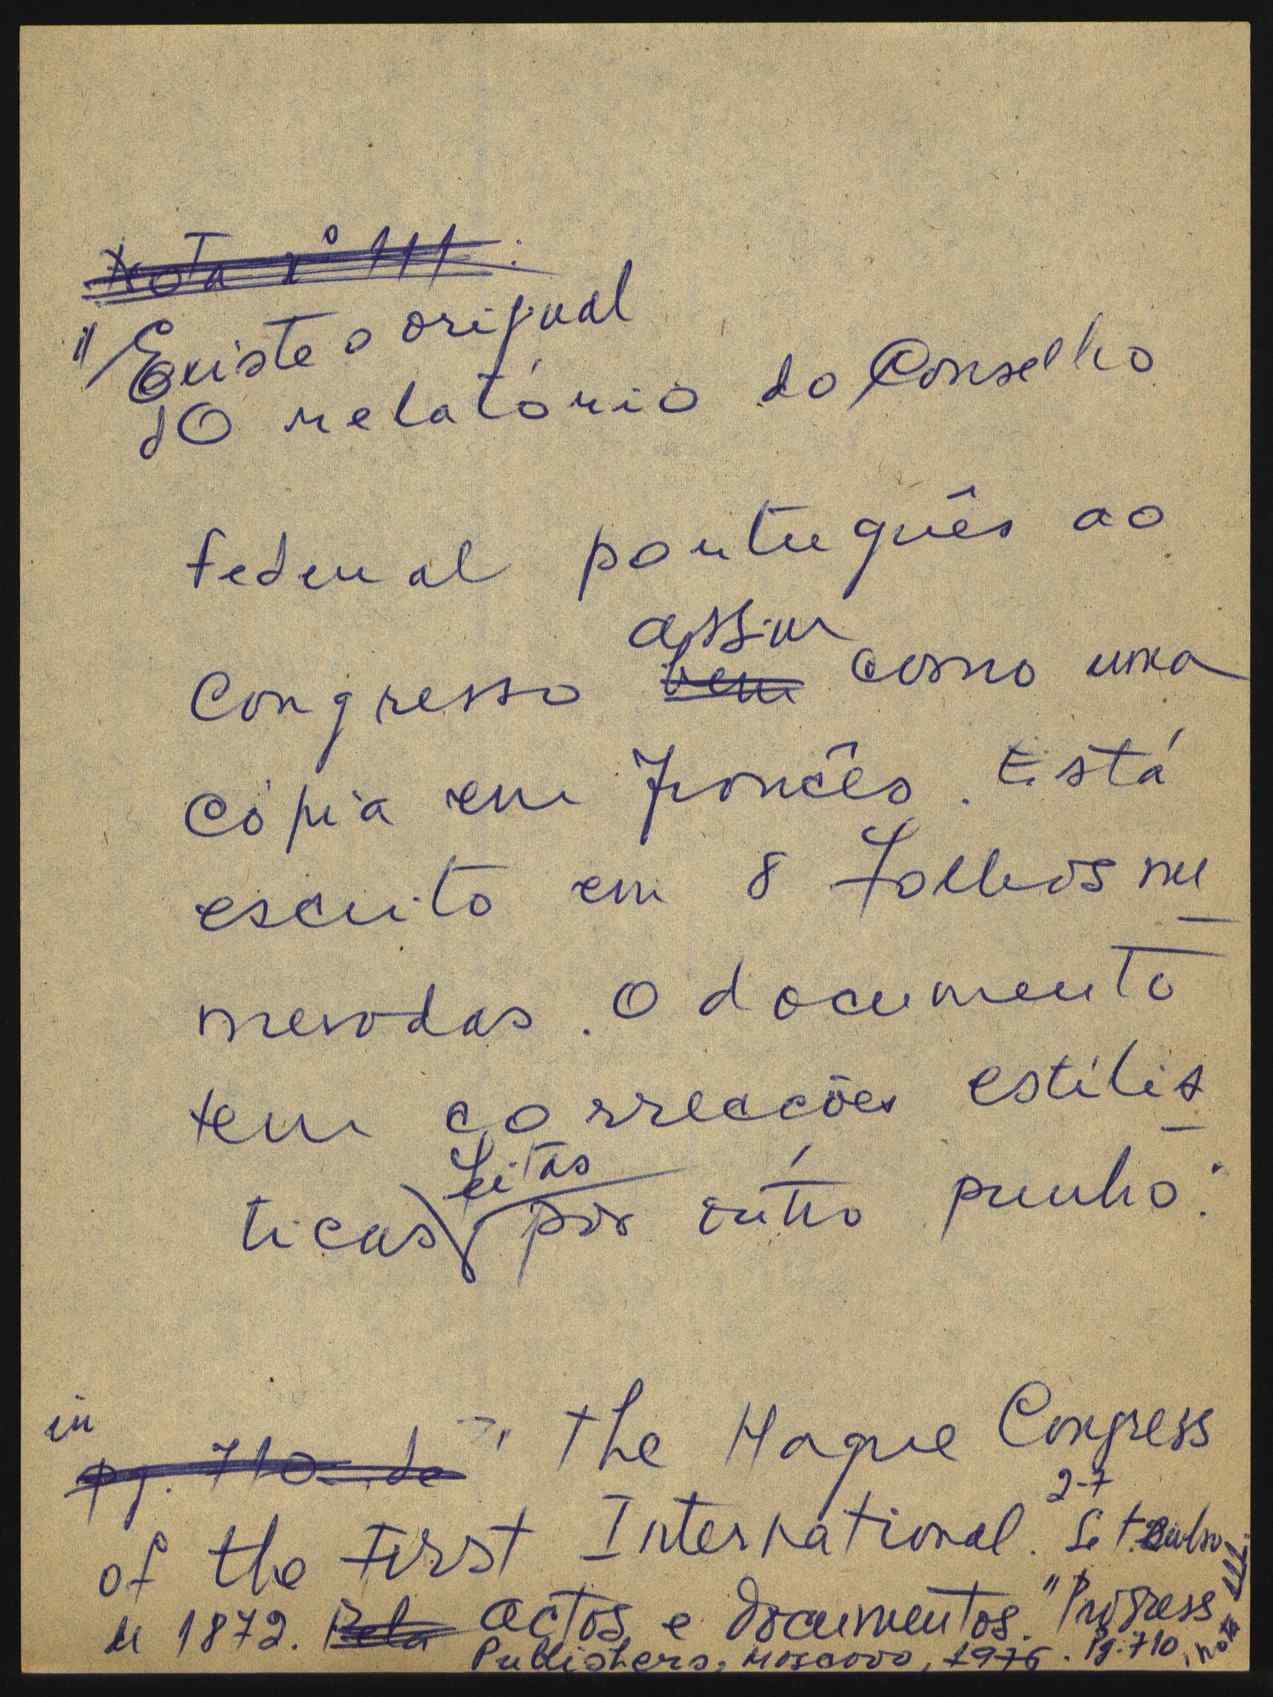 Nota nº 111:
"Existe o original
dO relatório do Conselho
federal português ao
assim
Congresso bem como uma
cópia em francês. Está
escrito em 8 folhas nu
meradas. O documento
tem correcções estilís
feitas
ticas por outro punho."
in
pg. 710 de "The Hague Congress
2-7
of the First International. Setembro
de 1872. Actos e documentos." Progress
Publishers, Moscovo, 1976. Pg. 710, nota 111.